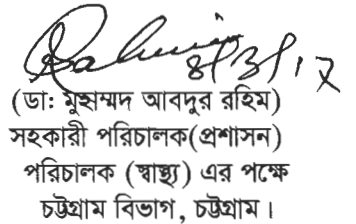 Rahim
8/3/17
(ডা: মুহাম্মদ আবদুর রহিম)
সহকারী পরিচালক(প্রশাসন)
পরিচালক (স্বাস্থ্য) এর পক্ষে
চট্টগ্রাম বিভাগ, চট্টগ্রাম।